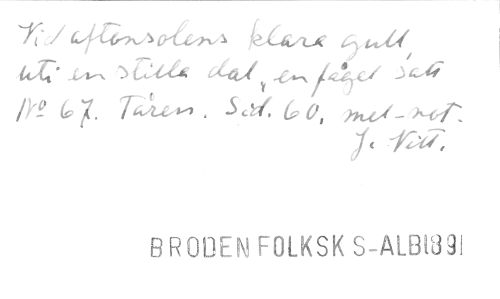 Vid aftonsolens klara gull,
uti en stilla dal, en fågel satt
No 67. Tåren. Sid. 60, mel-not.
J. Vitt.
BRODEN FOLKSK S-ALB1891